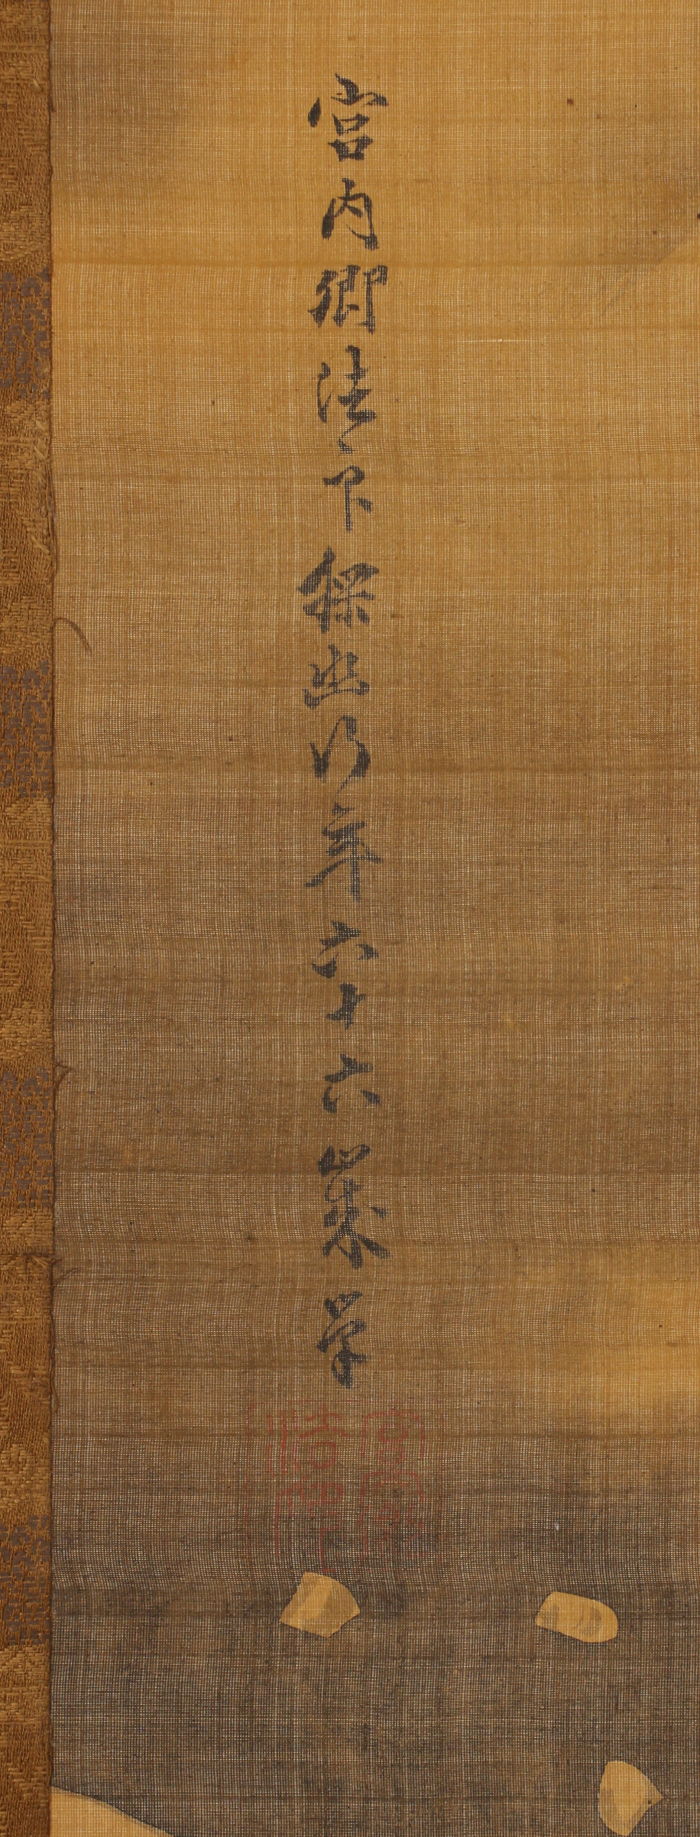 宮内卿法印探幽行年六十六歳筆